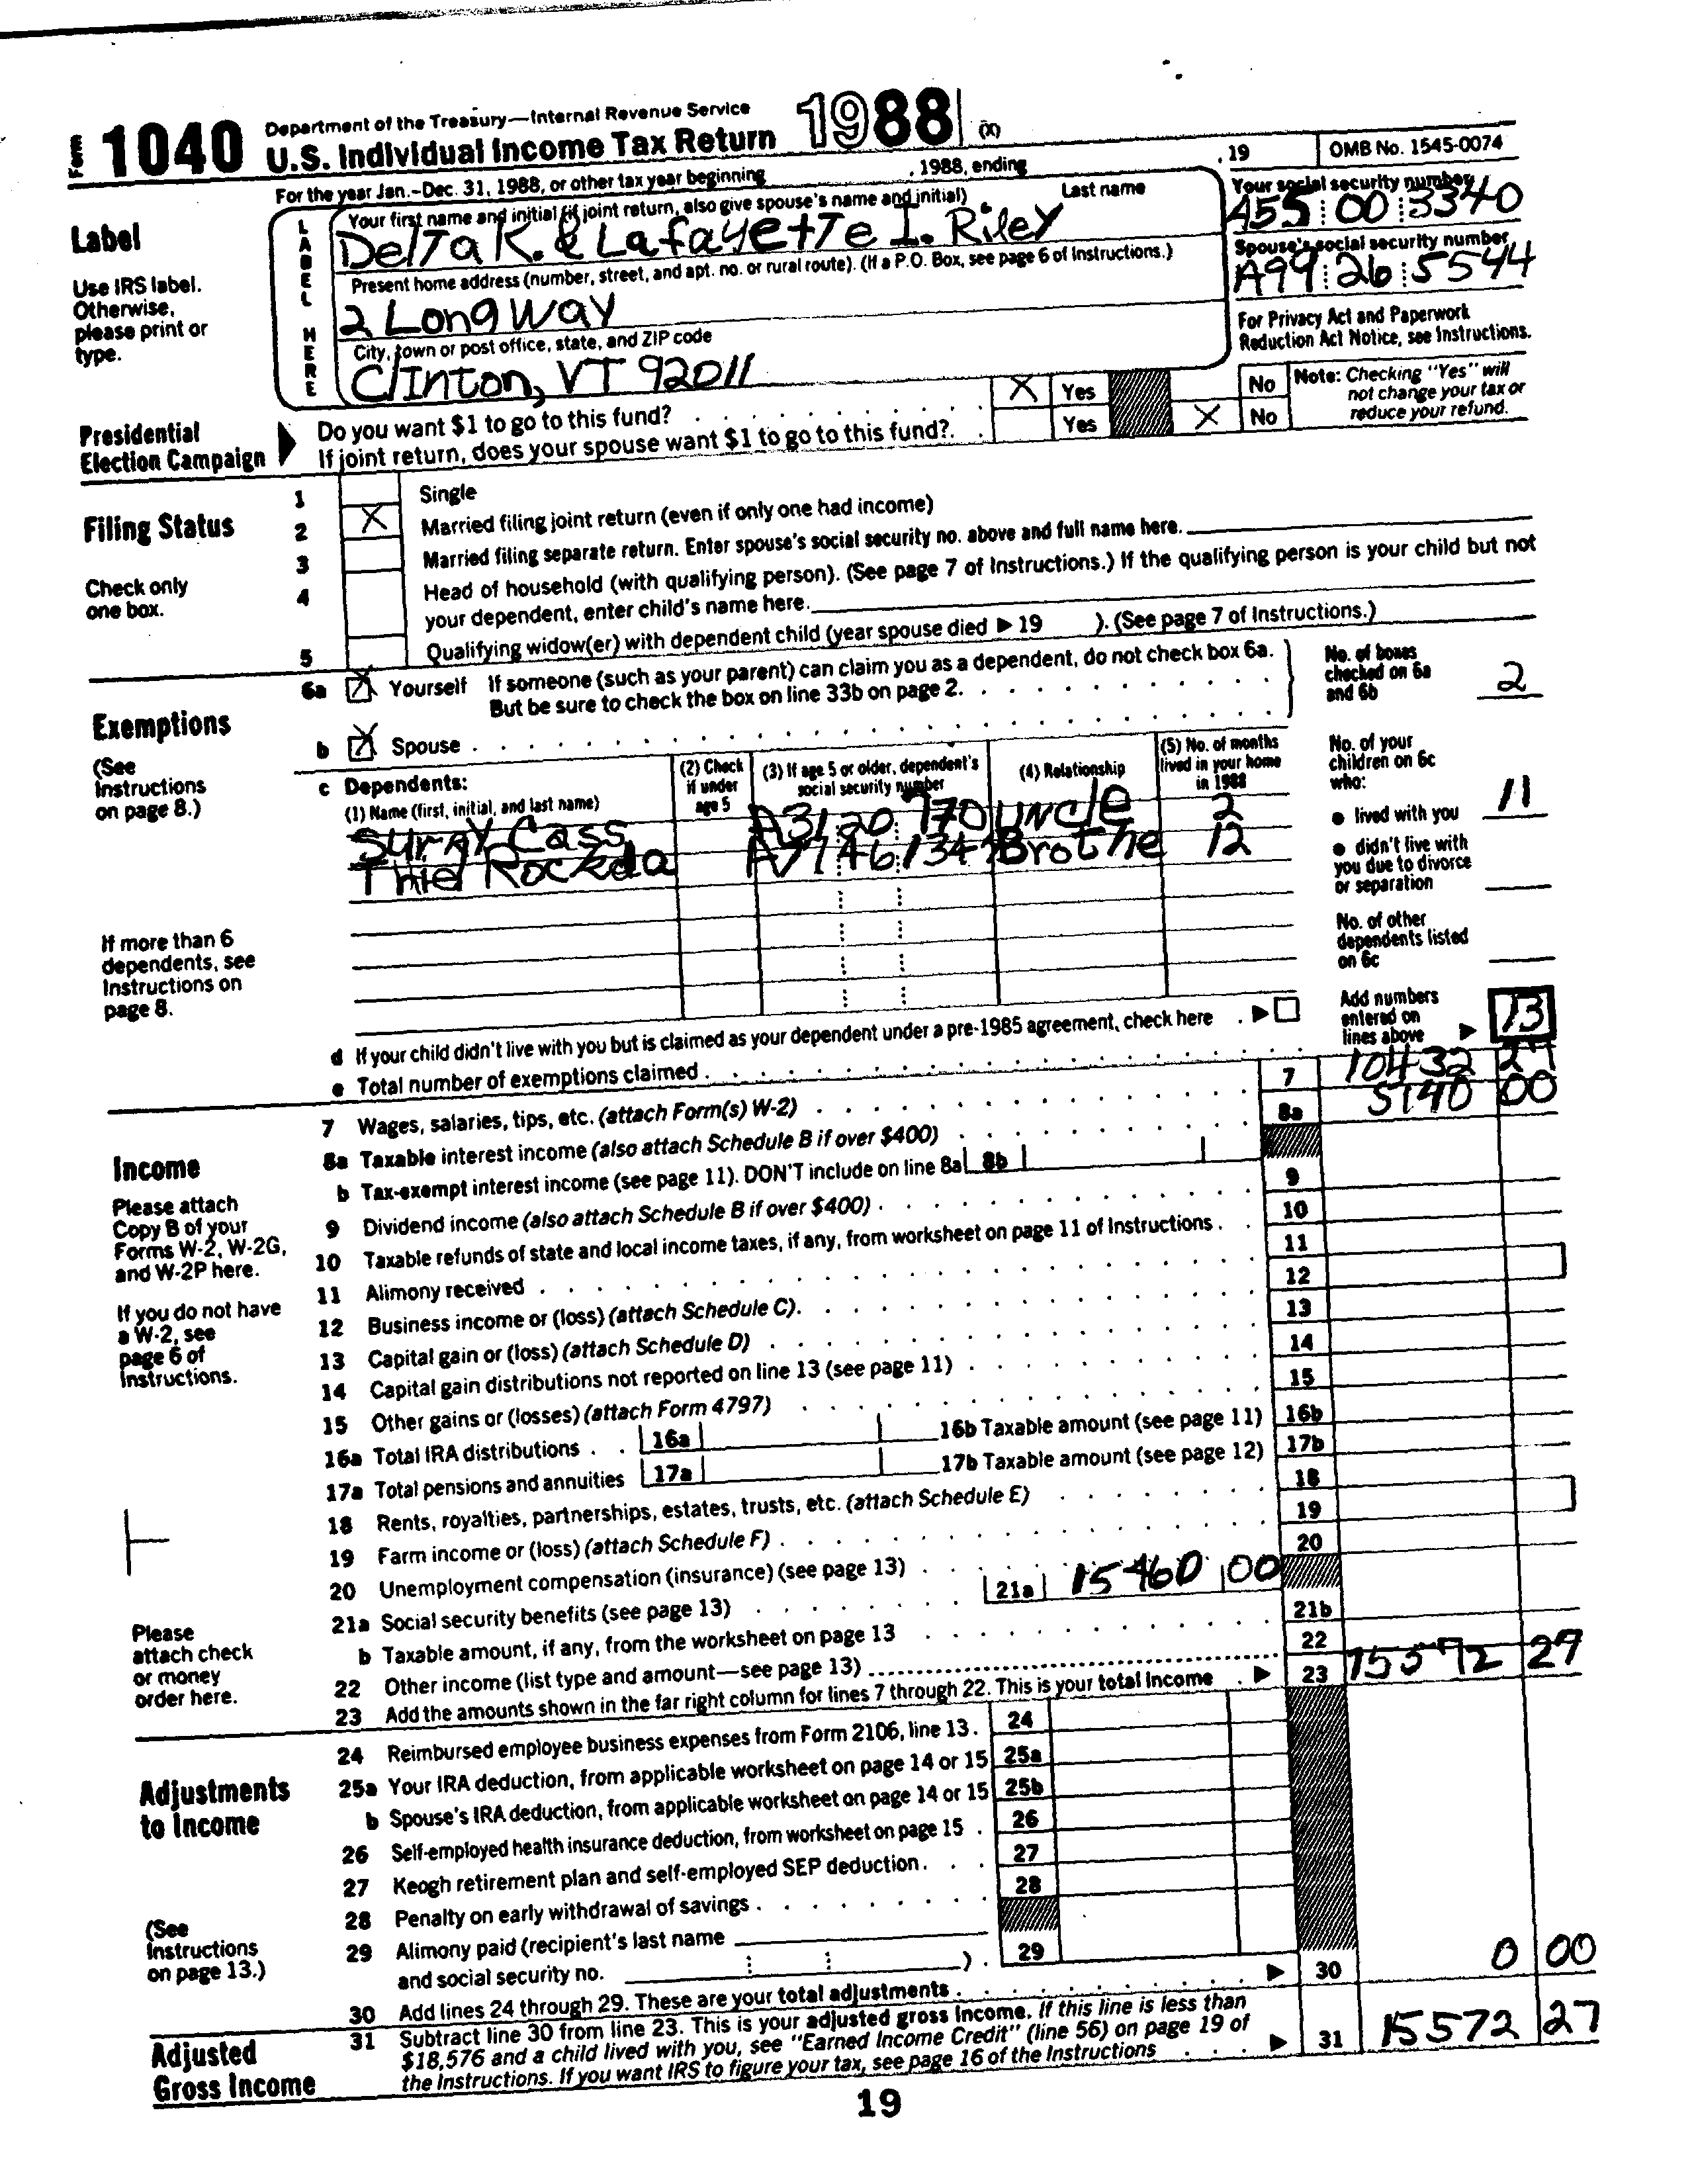 Form 1040 Department of the Treasury—Internal Revenue Service
U.S. Individual Income Tax Return 1988 (X)
For the year Jan.-Dec. 31, 1988, or other tax year beginning , 1988, ending , 19 OMB No. 1545-0074
Label
Use IRS label.
Otherwise,
please print or
type.
LABEL HERE
Your first name and initial (if joint return, also give spouse's name and initial) Last name
Delta K. & Lafayette I. Riley
Your social security number
A55 00 3340
Present home address (number, street, and apt. no. or rural route). (If a P.O. Box, see page 6 of Instructions.)
2 Long Way
Spouse's social security number
A99 26 5544
City, town or post office, state, and ZIP code
Clinton, VT 92011
For Privacy Act and Paperwork
Reduction Act Notice, see Instructions.
Presidential
Election Campaign
Do you want $1 to go to this fund? X Yes No
If joint return, does your spouse want $1 to go to this fund? Yes X No
Note: Checking "Yes" will
not change your tax or
reduce your refund.
Filing Status
Check only
one box.
1 Single
2 X Married filing joint return (even if only one had income)
3 Married filing separate return. Enter spouse's social security no. above and full name here.
4 Head of household (with qualifying person). (See page 7 of Instructions.) If the qualifying person is your child but not
your dependent, enter child's name here.
5 Qualifying widow(er) with dependent child (year spouse died ▶ 19 ). (See page 7 of Instructions.)
Exemptions
(See
Instructions
on page 8.)
If more than 6
dependents, see
Instructions on
page 8.
6a X Yourself If someone (such as your parent) can claim you as a dependent, do not check box 6a.
But be sure to check the box on line 33b on page 2.
b X Spouse
No. of boxes
checked on 6a
and 6b 2
c Dependents:
(1) Name (first, initial, and last name)
(2) Check
if under
age 5
(3) If age 5 or older, dependent's
social security number
(4) Relationship
(5) No. of months
lived in your home
in 1988
Cass A31 20 Uncle 2
Thiel Rockda Brothe 12
No. of your
children on 6c
who:
● lived with you 11
● didn't live with
you due to divorce
or separation
No. of other
dependents listed
on 6c
d If your child didn't live with you but is claimed as your dependent under a pre-1985 agreement, check here ▶
e Total number of exemptions claimed
Add numbers
entered on
lines above ▶ 13
Income
Please attach
Copy B of your
Forms W-2, W-2G,
and W-2P here.
If you do not have
a W-2, see
page 6 of
Instructions.
Please
attach check
or money
order here.
7 Wages, salaries, tips, etc. (attach Form(s) W-2) 7 10432 27
8a Taxable interest income (also attach Schedule B if over $400) 8a 5140 00
b Tax-exempt interest income (see page 11). DON'T include on line 8a 8b
9 Dividend income (also attach Schedule B if over $400) 9
10 Taxable refunds of state and local income taxes, if any, from worksheet on page 11 of Instructions 10
11 Alimony received 11
12 Business income or (loss) (attach Schedule C) 12
13 Capital gain or (loss) (attach Schedule D) 13
14 Capital gain distributions not reported on line 13 (see page 11) 14
15 Other gains or (losses) (attach Form 4797) 15
16a Total IRA distributions 16a 16b Taxable amount (see page 11) 16b
17a Total pensions and annuities 17a 17b Taxable amount (see page 12) 17b
18 Rents, royalties, partnerships, estates, trusts, etc. (attach Schedule E) 18
19 Farm income or (loss) (attach Schedule F) 19
20 Unemployment compensation (insurance) (see page 13) 20
21a Social security benefits (see page 13) 21a 15460 00
b Taxable amount, if any, from the worksheet on page 13 21b
22 Other income (list type and amount—see page 13) 22
23 Add the amounts shown in the far right column for lines 7 through 22. This is your total income ▶ 23 15572 27
Adjustments
to Income
(See
Instructions
on page 13.)
24 Reimbursed employee business expenses from Form 2106, line 13. 24
25a Your IRA deduction, from applicable worksheet on page 14 or 15 25a
b Spouse's IRA deduction, from applicable worksheet on page 14 or 15 25b
26 Self-employed health insurance deduction, from worksheet on page 15 26
27 Keogh retirement plan and self-employed SEP deduction 27
28 Penalty on early withdrawal of savings 28
29 Alimony paid (recipient's last name
and social security no. ) 29
30 Add lines 24 through 29. These are your total adjustments ▶ 30 0 00
Adjusted
Gross Income
31 Subtract line 30 from line 23. This is your adjusted gross income. If this line is less than
$18,576 and a child lived with you, see "Earned Income Credit" (line 56) on page 19 of
the Instructions. If you want IRS to figure your tax, see page 16 of the Instructions ▶ 31 15572 27
19